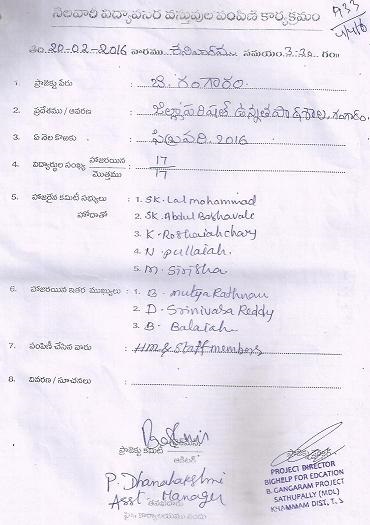 నెలవారి విద్యావసర వస్తువుల పంపిణీ కార్యక్రమం
తేది 20-02-2016 వారము శనివారము సమయం 3-30 గం॥
1. ప్రాజెక్టు పేరు : బి. గంగారం.
2. ప్రదేశము / ఆవరణ : జిల్లాపరిషత్ ఉన్నతపాఠశాల, గంగారం.
3. ఏ నెల కొఱకు : ఫిబ్రవరి. 2016
4. విద్యార్థుల సంఖ్య హాజరయిన : 17
మొత్తము 17
5. హాజరైన కమిటీ సభ్యులు : 1. SK. Lal mohammad
హోదాతో 2. SK. Abdul Bashavale
3. K. Roshaiah chary
4. N. pullaiah.
5. M. Sirisha
6. హాజరయిన ఇతర ముఖ్యులు : 1. B. mutya Rathnam
2. D. Srinivasa Reddy
3. B. Balaiah
7. పంపిణీ చేసిన వారు : HM & Staff members
8. వివరణ / సూచనలు :
ప్రాజెక్టు కమిటీ
P. Dhanalakshmi
Asst Manager
PROJECT DIRECTOR
BIGHELP FOR EDCATION
B. GANGARAM PROJECT
SATHUPALLY (MDL)
KHAMMAM DIST, T. S